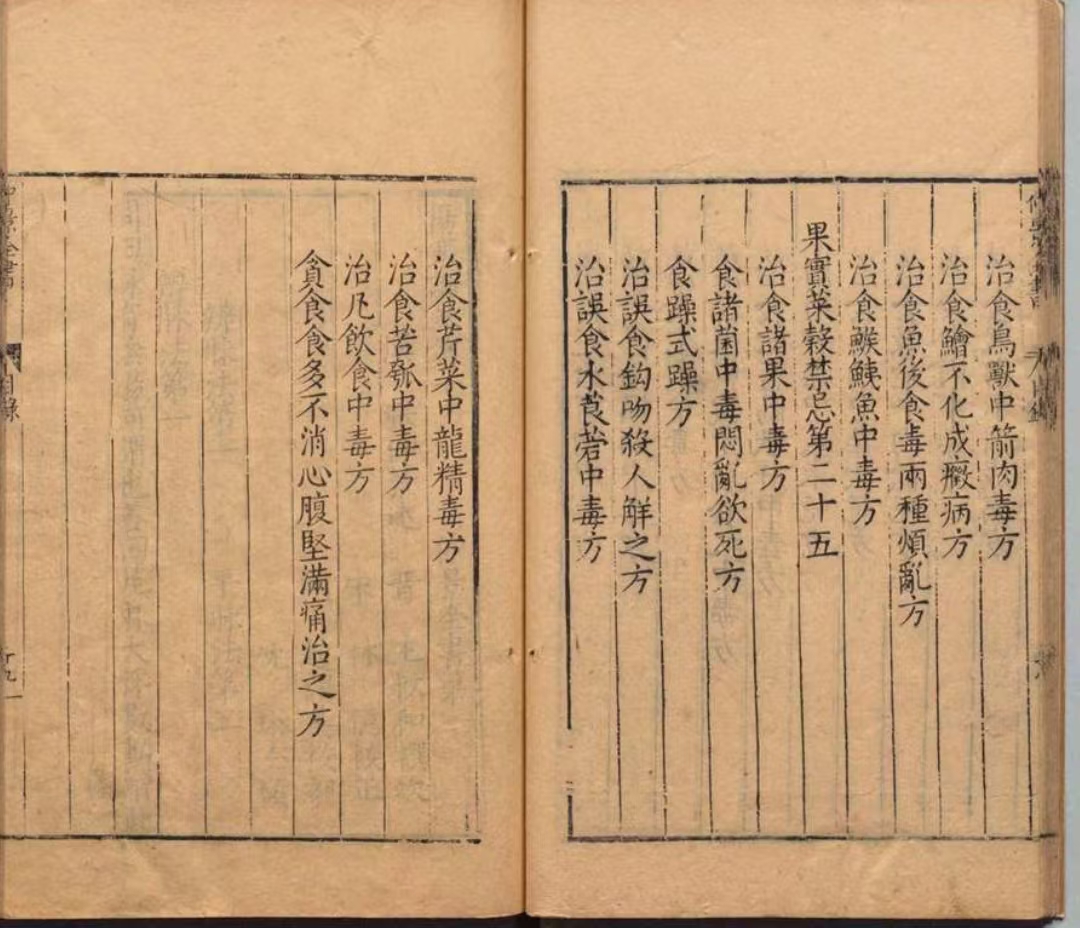 治食鳥獸中箭肉毒方
治食鱠不化成癥病方
治食魚後食毒兩種煩亂方
治食鯸鮧魚中毒方
果實菜穀禁忌第二十五
治食諸果中毒方
食諸菌中毒悶亂欲死方
食躁式躁方
治誤食鈎吻殺人解之方
治誤食水莨菪中毒方
治食芹菜中龍精毒方
治食苦瓠中毒方
治凡飲食中毒方
貪食食多不消心腹堅滿痛治之方
全書
目錄